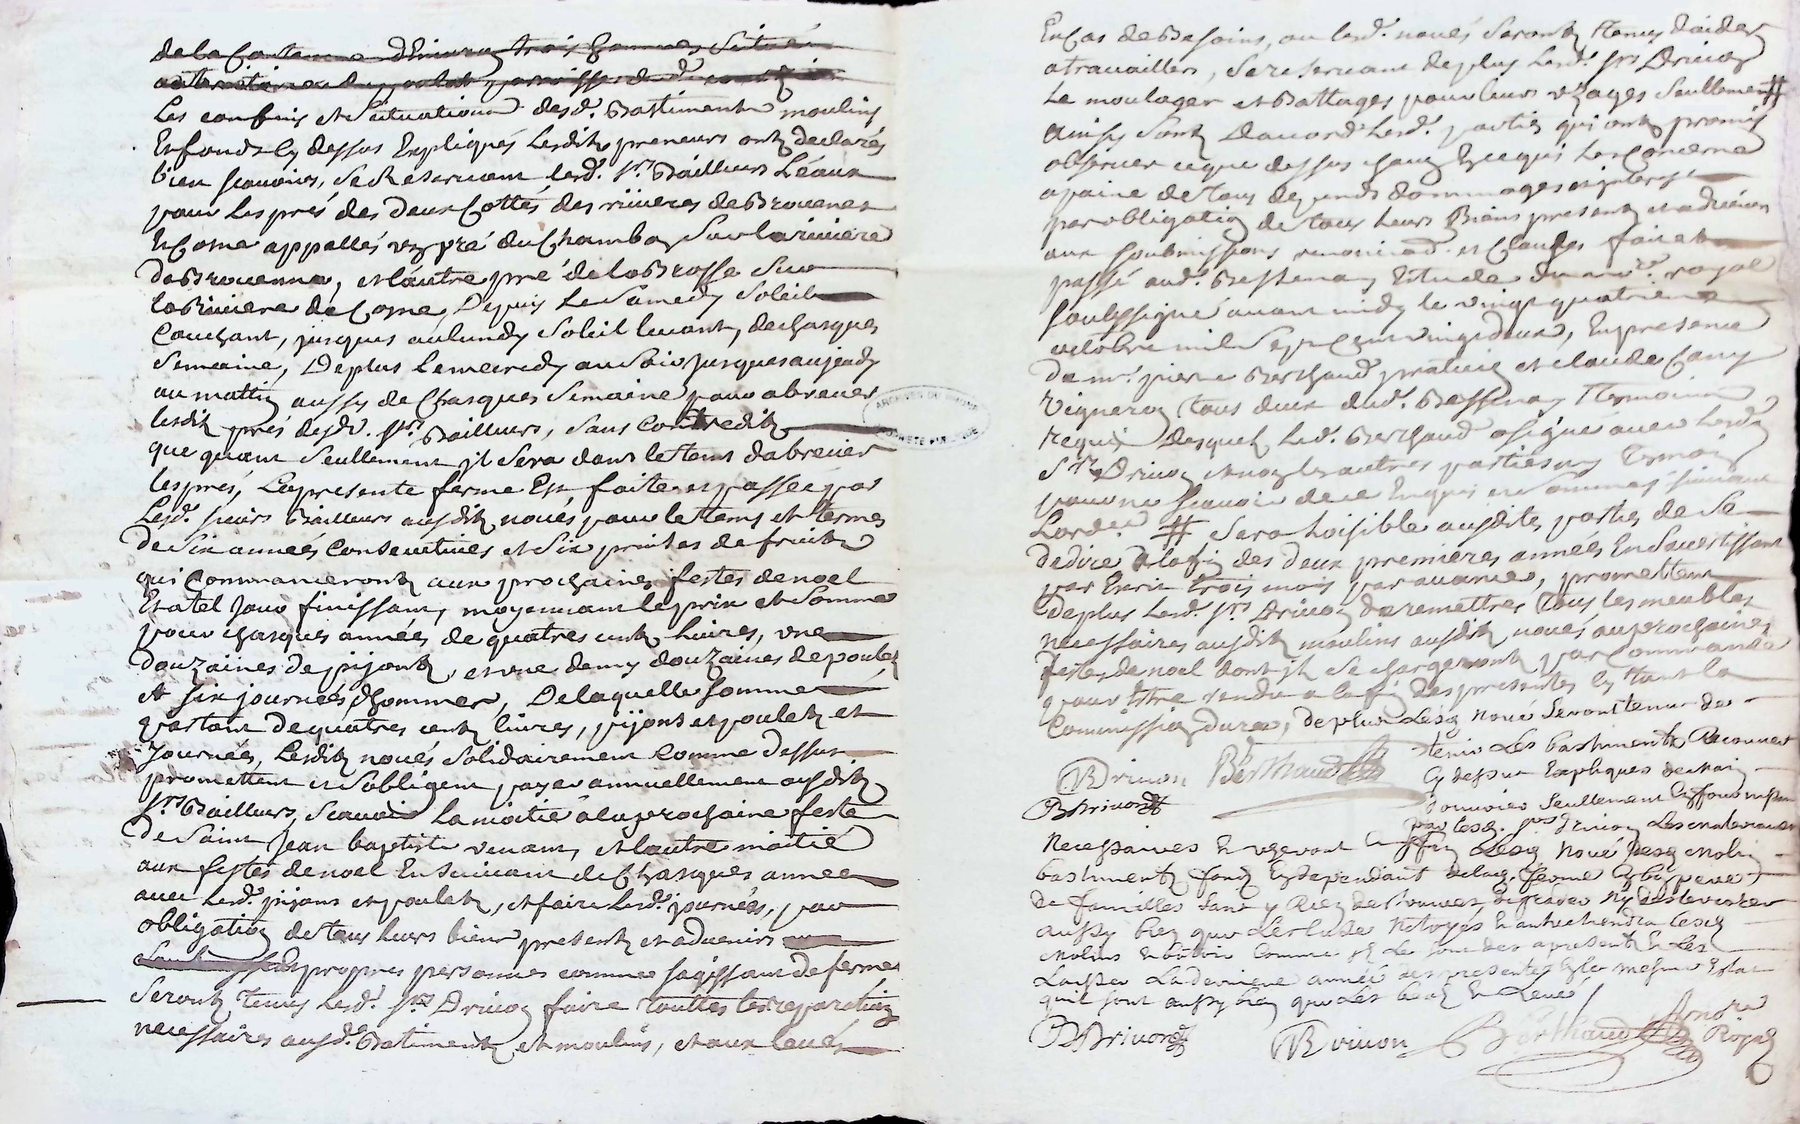 de la Contenue d'Environ trois hommes scituée
Les confins et scituations desd. Bastiments moulins
Et fonds cy dessus Expliqués Lesdits preneurs ont declarés
bien scavoirs, se Reservant lesd. Srs Bailleurs L'eaux
pour Les prés des deux Cottés des rivieres de Brouenes
Et Cosne appellés un pré du Chambon sur la riviere
de Brouenne, et l'autre pré de la Brosse sur
la Riviere de Cosne, Depuis Le samedy soleil
Couchant, jusques au lundy soleil levant, de chasques
semaine, De plus Le mecredy au soir jusques au jeudy
au mattin aussy de Chasques semaine pour abrever
lesdits prés desd. Srs Bailleurs, sans Contredits
que quant seullement il sera dans le tems d'abrever
les prés, La presente ferme Est faitte et passée par
Lesd. sieurs Bailleurs ausdits noués pour le tems et termes
de six années consecutives et six prinses de fruits
qui Commanceront aux prochaines festes de noel
Et a tel jour finissant, moyennant le prix et somme
pour chasques années de quatres cents livres, une
douzaines de pijonts, et une demy douzaines de poulets
et six journées d'hommes, De laquelle somme
partant de quatres cents livres, pijons et poulets et
journées, Lesdits noués solidairement comme dessus
promettent et s'obligent payer annuellement ausdits
Srs Bailleurs, scavoir La moitié a la prochaine feste
de saint Jean baptiste venant, et l'autre moitié
aux festes de noel Ensuivant de Chasques année
avec Lesd. pijons et poulets, et faire Lesd. journées, par
obligation de tous leurs biens presents et advenirs
propres personnes comme s'agissant de ferme
seront tenus Lesd. Srs Drivon faire touttes les reparations
necessaires ausd. Batiments et moulins, et aux levés
En Cas de Besoins, ou lesd. noués seront tenus d'aider
a travailler, se reservant de plus Lesd. Srs Drivon
Le moulages et Battages pour leurs usages seullement #
Ainsy sont D'accord Lesd. parties qui ont promis
observer ce que dessus chacun En ce qui Les Concerne
a paine de tous depends dommages interest
par obligation de tous leurs Biens presents et advenirs
aux soubmissions renonciaons et Clauses fait et
passé aud. Bessenay Estude du no.re royal
soubssigné avant midy le vingt quatrieme
octobre mil sept Cent vingt deux, En presence
de mr. pierre Berthaud praticien et claude Cany
Vigneron tous deux dud. Bessenay Temoins
requis Desquels Led. Berthaud a signé avec Lesd.
Srs Drivon et non les autres parties ny Temoin
pour ne scavoir de ce Enquis et sommés suivant
L'ord.ce # sera Loisible ausdites parties de se
dedire a la fin des deux premieres années En s'avertissant
par Escrit trois mois par avance, promettent
de plus Lesd. Srs Drivon de remettre tous les meubles
necessaires ausdits moulins ausdits noués aux prochaines
festes de noel dont il se chargeront par Commande
pour Estre rendu a la fin des presentes Et tant la
Commission durée, de plus Lesd. Noué seront tenu de
tenir Les bastiments Recouvert
Cy dessus Expliqués de main
d'ouvrier seullement En fournissant
par lesd. Srs drivon Les materiaux
Necessaires Et useront Enfin Lesd. Noué desd. molin
bastiments fonds Et dependant de lad. ferme En bon pere
de familles sans y Rien destruire, degrader Ny detteriorer
aussy bien que L'escluse Netoyés Entretiendra lesd.
Molins En bon Comme ils Le sont des apresent Et Les
Laisser La derniere année des presentes En le mesme Estat
qu'il sont aussy bien que Les biefs Et Levés
Drivon Berthaud
B Drivon
B Drivon Drivon Berthaud Arnore Royal